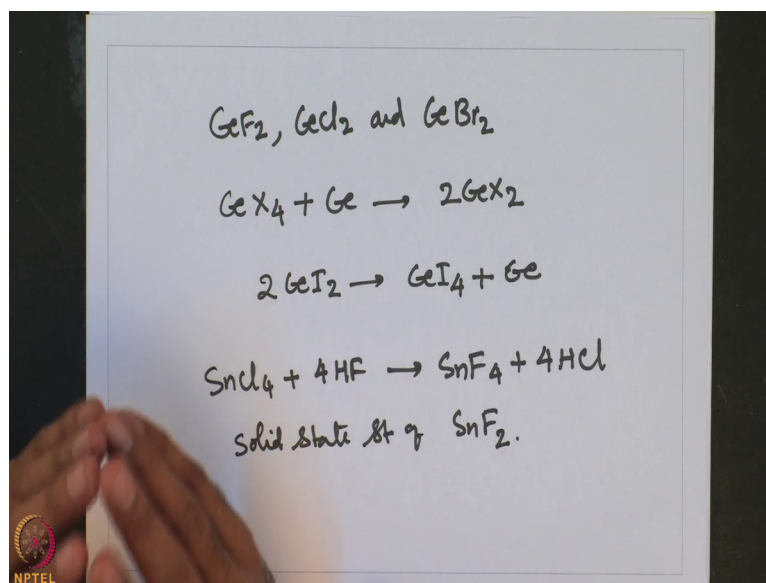 GeF2, GeCl2 and GeBr2
GeX4 + Ge → 2GeX2
2GeI2 → GeI4 + Ge
SnCl4 + 4HF → SnF4 + 4HCl
Solid State St of SnF2.
NPTEL